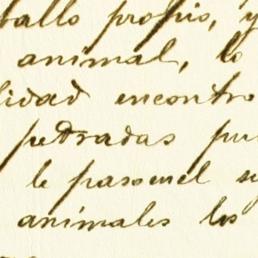 ballo propio, y
animal, lo
lidad encontro
pedradas pu
le pasó en el su
animales los